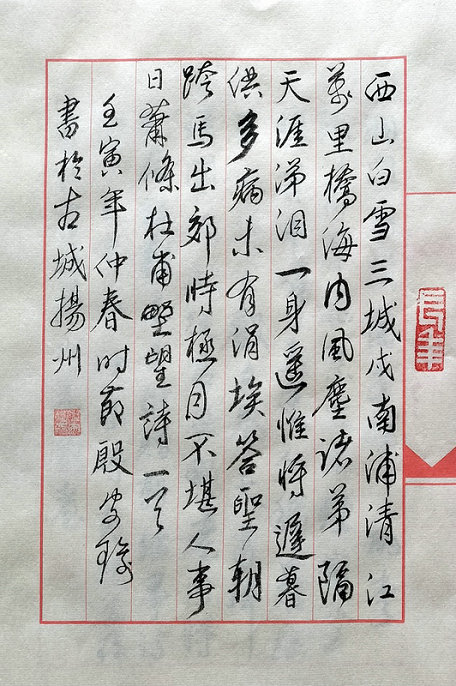 西山白雪三城戍南浦清江
萬里橋海内風塵諸弟隔
天涯涕淚一身遥惟將遲暮
供多病未有涓埃答聖朝
跨馬出郊時極目不堪人事
日蕭條杜甫野望詩一首
壬寅年仲春時節殷
書於古城揚州